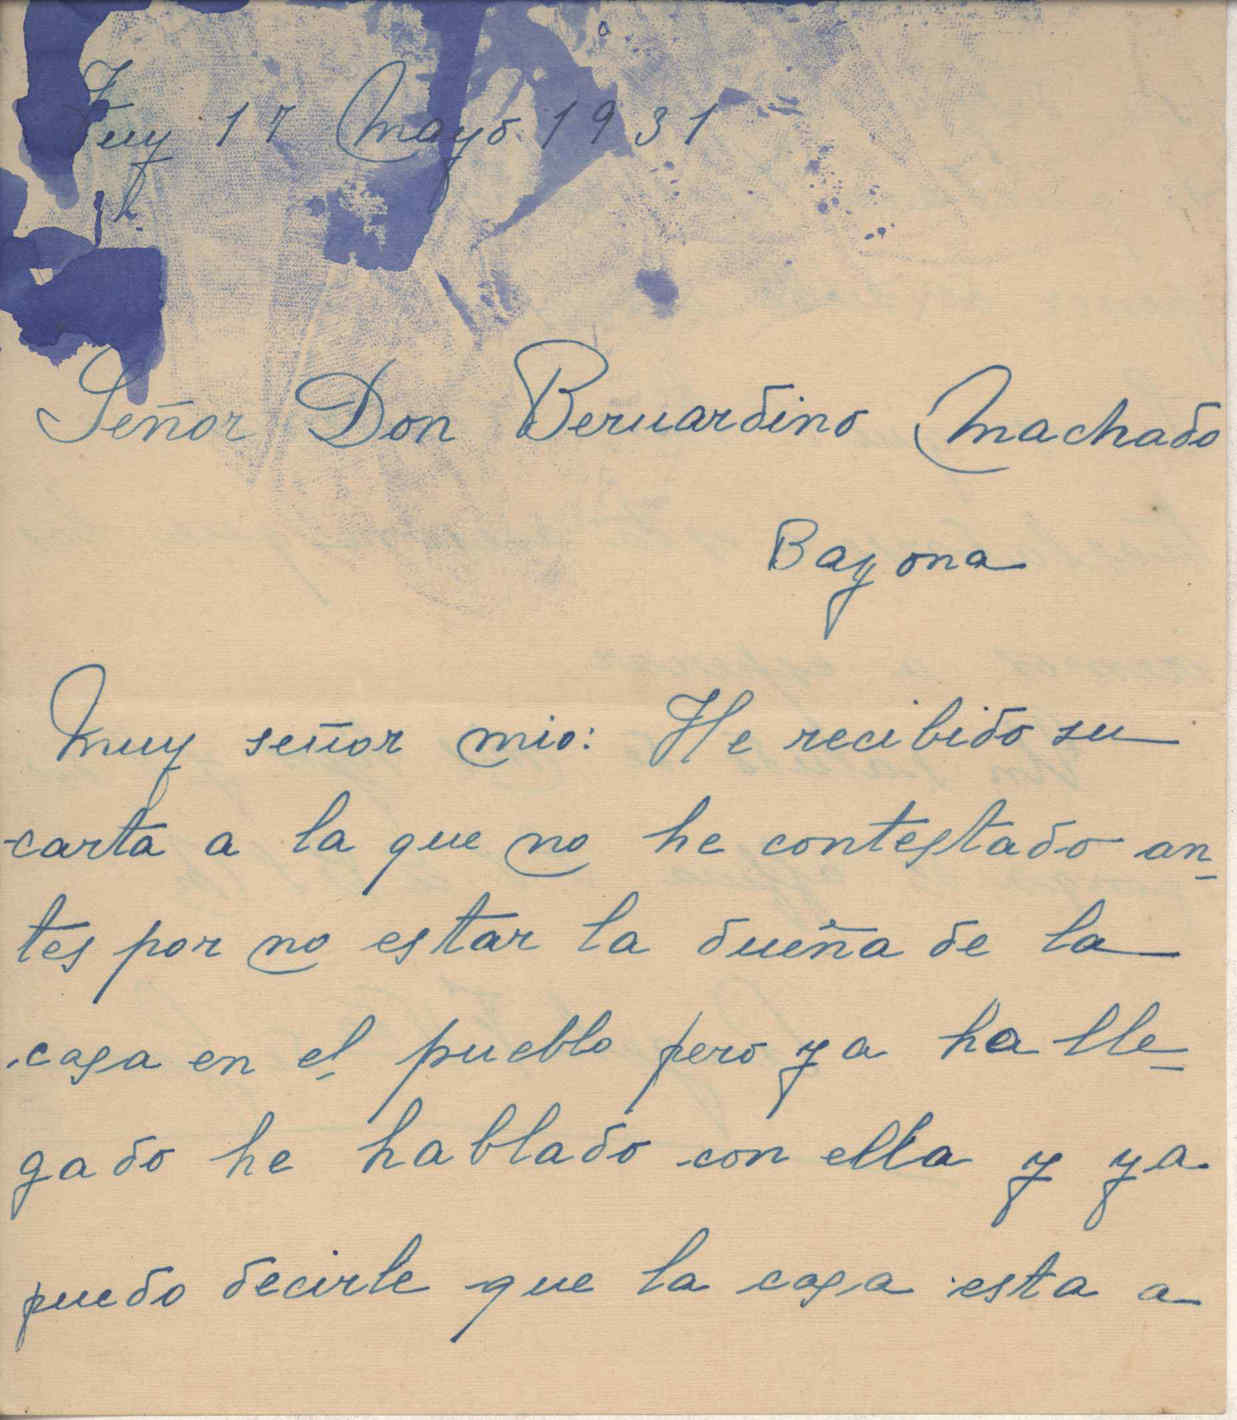 Tuy 17 Mayo 1931
Señor Don Bernardino Machado
Bayona
Muy señor mio: He recibido su
carta a la que no he contestado an-
tes por no estar la dueña de la
casa en el pueblo pero ya ha lle-
gado he hablado con ella y ya
puedo decirle que la casa esta a